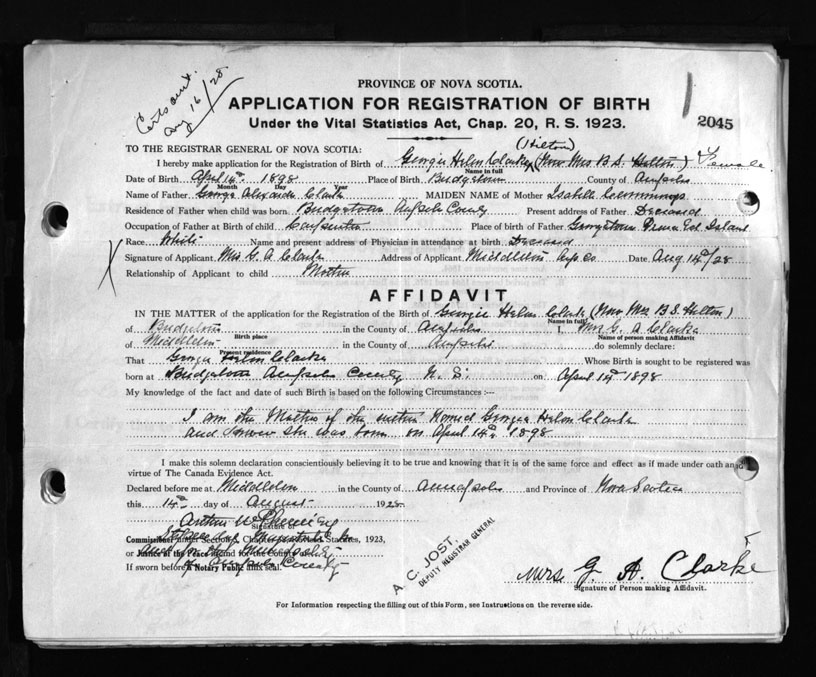 Certs out.
Aug 16/28
PROVINCE OF NOVA SCOTIA.
APPLICATION FOR REGISTRATION OF BIRTH
Under the Vital Statistics Act, Chap. 20, R. S. 1923.
2045
(Hilton)
TO THE REGISTRAR GENERAL OF NOVA SCOTIA:
I hereby make application for the Registration of Birth of Georgie Helen Clarke (Now Mrs B. S. Hilton) Female
Name in full
Date of Birth April 14th 1898 Place of Birth Bridgetown County of Annapolis
Month Day Year
Name of Father George Alexander Clarke MAIDEN NAME of Mother Isabell Cummings
Residence of Father when child was born Bridgetown Annapolis County Present address of Father Deceased
Occupation of Father at Birth of child Carpenter Place of birth of Father Georgetown Prince Ed. Island
Race White Name and present address of Physician in attendance at birth Deceased
Signature of Applicant Mrs G. A. Clarke Address of Applicant Middleton Anp. Co. Date Aug 14th/28
Relationship of Applicant to child Mother
AFFIDAVIT
IN THE MATTER of the application for the Registration of the Birth of Georgie Helen Clarke (Now Mrs B.S. Hilton)
Name in full
of Bridgetown in the County of Annapolis I, Mrs. G. A Clarke
Birth place Name of person making Affidavit
of Middleton in the County of Annapolis do solemnly declare:
Present residence
That Georgie Helen Clarke Whose Birth is sought to be registered was
born at Bridgetown Annapolis County N. S. on April 14th 1898
My knowledge of the fact and date of such Birth is based on the following Circumstances:—
I am the Mother of the within Named Georgie Helen Clarke
and know she was born on April 14th 1898
I make this solemn declaration conscientiously believing it to be true and knowing that it is of the same force and effect as if made under oath and
virtue of The Canada Evidence Act.
Declared before me at Middleton in the County of Annapolis and Province of Nova Scotia
this 14th day of August 1928
Arthur W.
Signature of
Commissioner under Statutes, 1923,
or Justice of the Peace and for the County
If sworn before A Notary Public affix seal. County
A. C. JOST,
DEPUTY REGISTRAR GENERAL
Mrs. G. A. Clarke
Signature of Person making Affidavit.
For Information respecting the filling out of this Form, see Instructions on the reverse side.